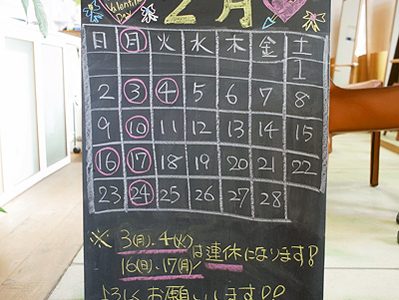 Valentine
Day
2月
日 月 火 水 木 金 土
1
2 3 4 5 6 7 8
9 10 11 12 13 14 15
16 17 18 19 20 21 22
23 24 25 26 27 28
※ 3(月)、4(火)
16(日)、17(月)は連休になります!
よろしくお願いします!!